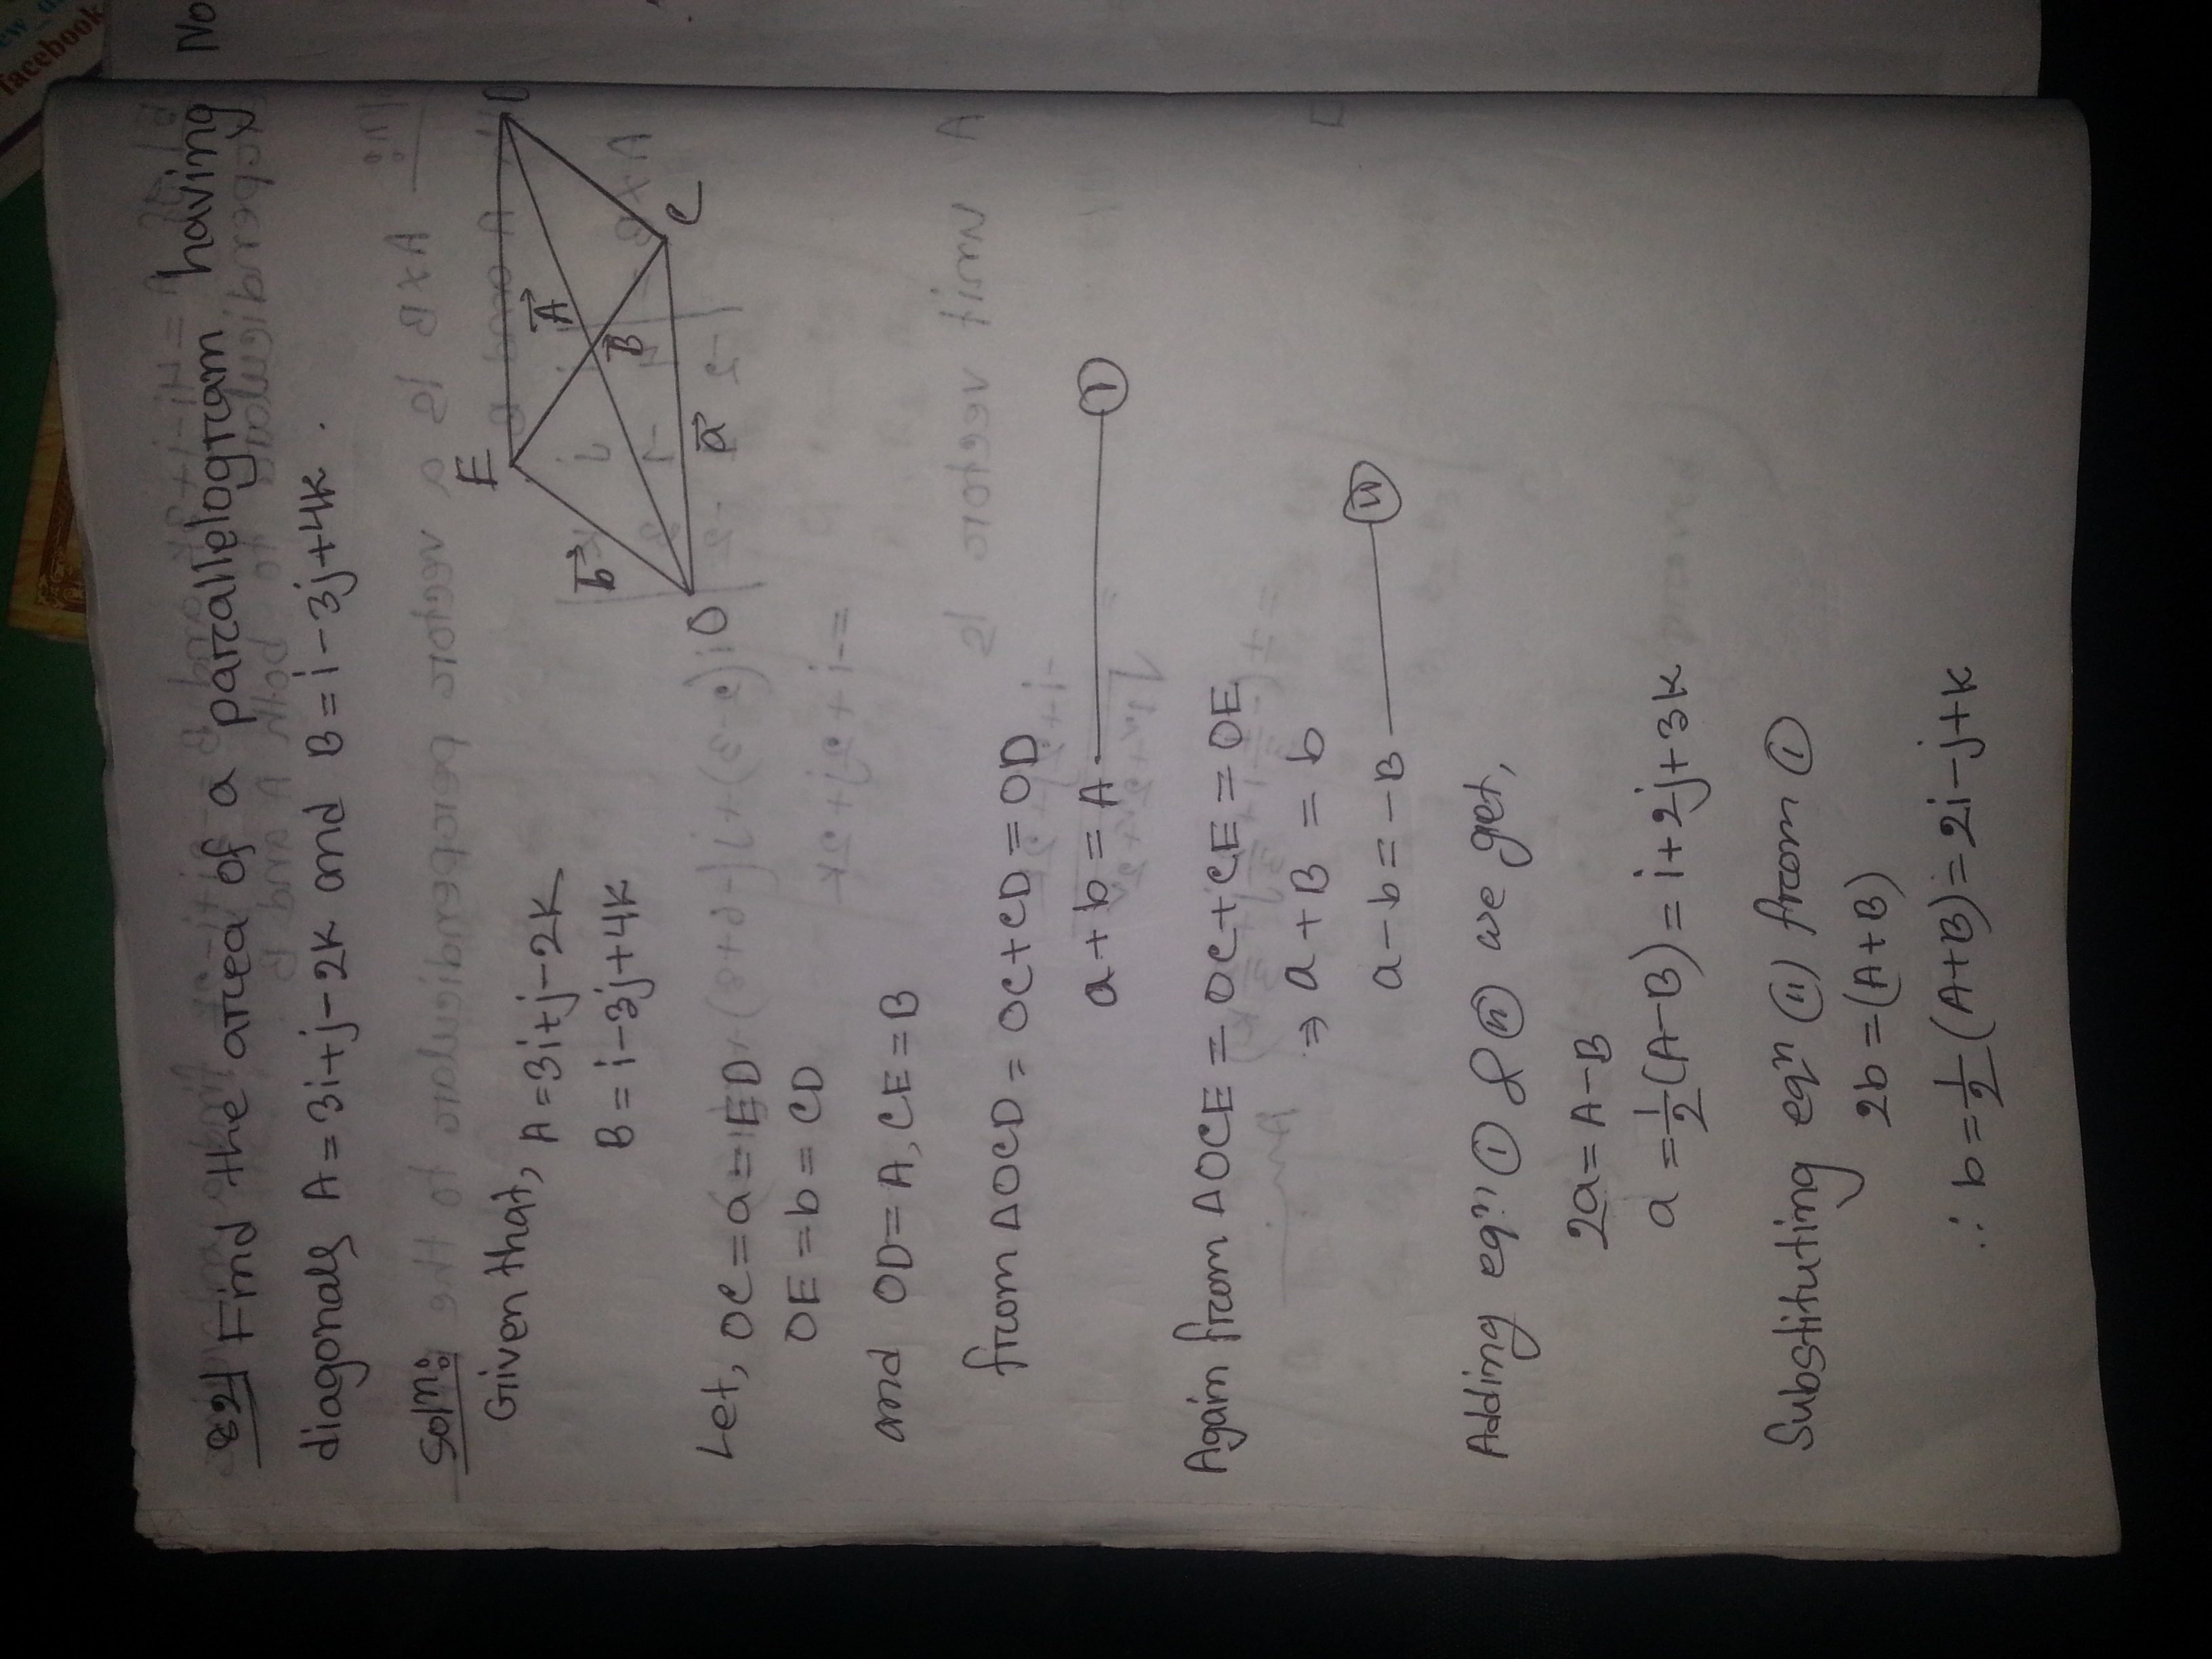 82) Find the area of a parallelogram having
diagonals A = 3i+j-2k and B = i-3j+4k .
Soln:
Given that, A = 3i+j-2k
B = i-3j+4k
E
A
b
B
O
a
C
Let, OC = a = ED
OE = b = CD
and OD = A, CE = B
from ΔOCD = OC+CD = OD
a + b = A (i)
Again from ΔOCE = OC+CE = OE
⇒ a + B = b
a - b = -B (ii)
Adding eqn (i) & (ii) we get,
2a = A-B
a = 1/2 (A-B) = i+2j+3k
Substituting eqn (ii) from (i)
2b = (A+B)
∴ b = 1/2 (A+B) = 2i-j+k
No
facebook